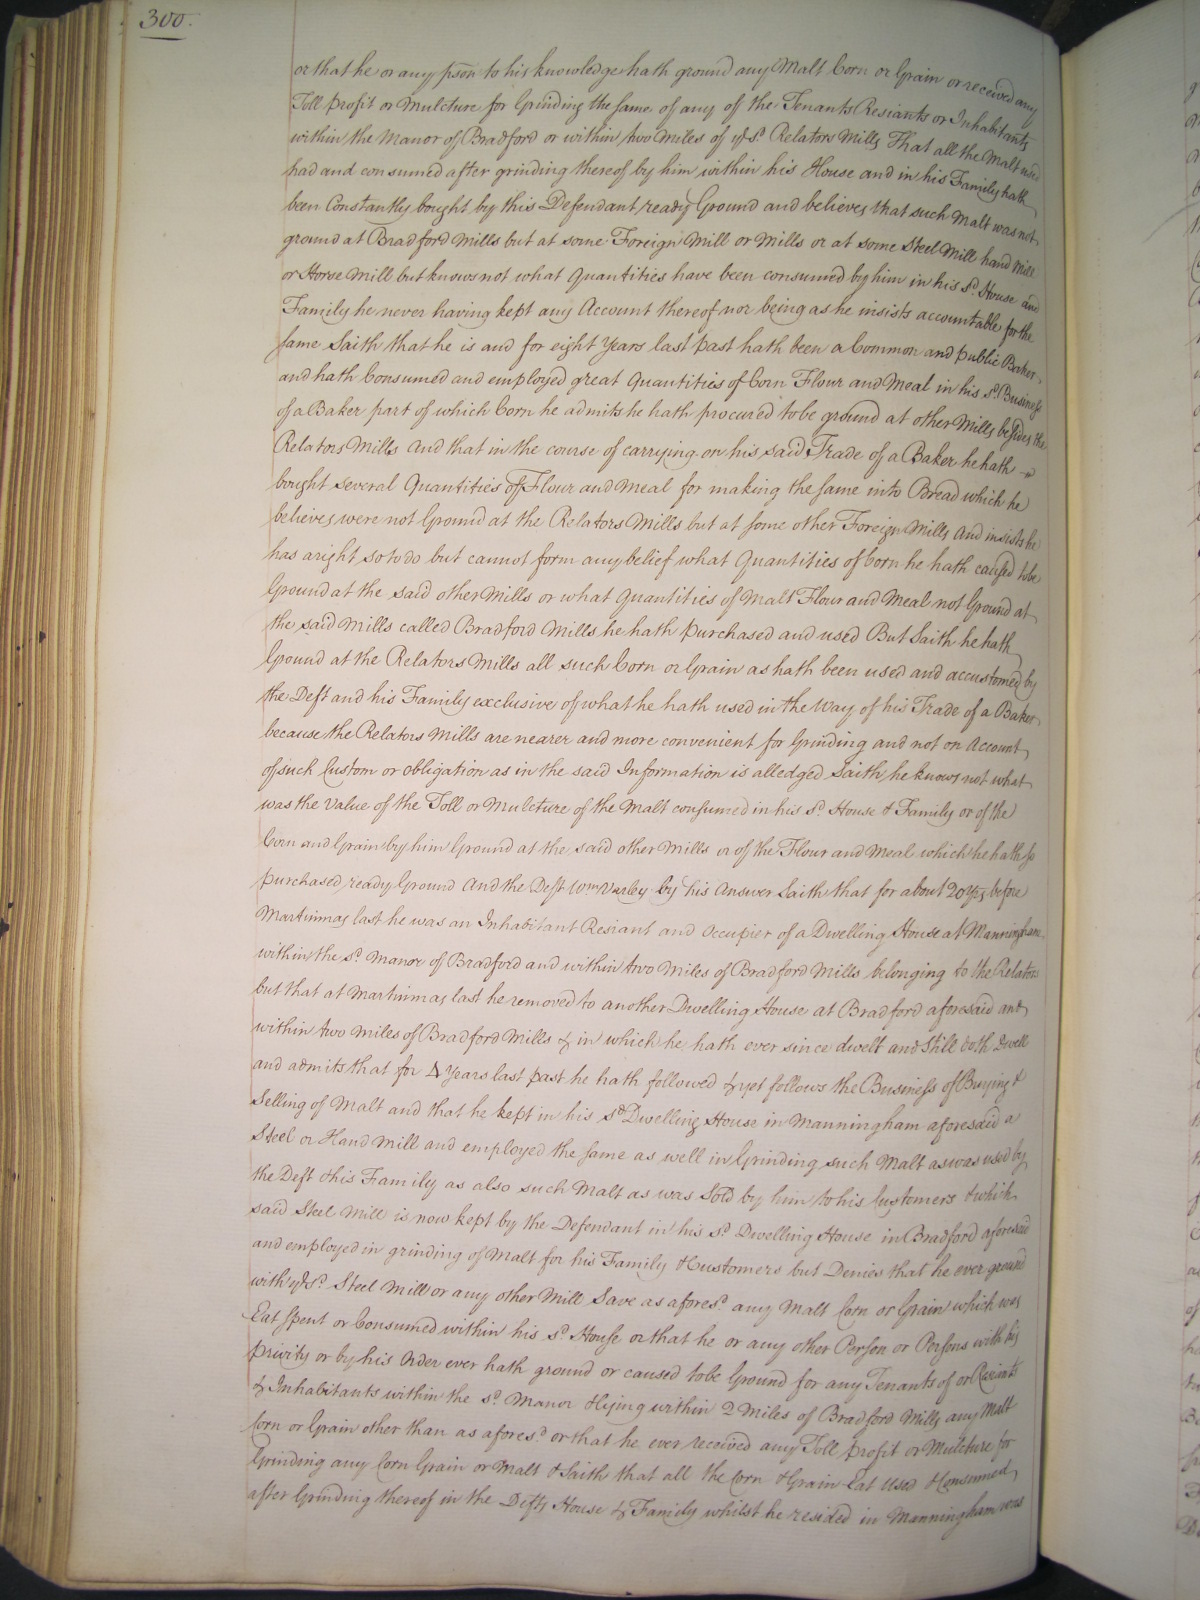 300.
or that he or any pson to his knowledge hath ground any Malt Corn or Grain or received any
Toll profit or Mulcture for Grinding the same of any of the Tenants Resiants or Inhabitants
within the Manor of Bradford or within two Miles of ye sd. Relators Mills That all the Malt used
had and consumed after grinding thereof by him within his House and in his Family hath
been Constantly bought by this Defendant ready Ground and believes that such Malt was not
ground at Bradford Mills but at some Foreign Mill or Mills or at some Steel Mill hand Mill
or Horse Mill but knows not what Quantities have been consumed by him in his sd. House and
Family he never having kept any Account thereof nor being as he insists accountable for the
same Saith that he is and for eight Years last past hath been a Common and public Baker
and hath Consumed and employed great Quantities of Corn Flour and Meal in his sd. Business
of a Baker part of which Corn he admits he hath procured to be ground at other Mills besides the
Relators Mills And that in the course of carrying on his said Trade of a Baker he hath
bought several Quantities of Flour and Meal for making the same into Bread which he
believes were not Ground at the Relators Mills but at some other Foreign Mills And insists he
has a right so to do but cannot form any belief what Quantities of Corn he hath caused to be
Ground at the said other Mills or what Quantities of Malt Flour and Meal not Ground at
the said Mills called Bradford Mills he hath purchased and used But Saith he hath
Ground at the Relators Mills all such Corn or Grain as hath been used and accustomed by
the Deft and his Family exclusive of what he hath used in the Way of his Trade of a Baker
because the Relators Mills are nearer and more convenient for Grinding and not on Account
of such Custom or Obligation as in the said Information is alledged Saith he knows not what
was the Value of the Toll or Mulcture of the Malt consumed in his sd. House & Family or of the
Corn and Grain by him Ground at the said other Mills or of the Flour and Meal which he hath so
purchased ready Ground And the Deft Wm Varley by his Answer Saith that for about 20 Yrs before
Martinmas last he was an Inhabitant Resiant and Occupier of a Dwelling House at Manningham
within the sd. Manor of Bradford and within two Miles of Bradford Mills belonging to the Relators
but that at Martinmas last he removed to another Dwelling House at Bradford aforesaid and
within two Miles of Bradford Mills & in which he hath ever since dwelt and Still doth Dwell
and admits that for 4 Years last past he hath followed & yet follows the Business of Buying &
Selling of Malt and that he kept in his sd Dwelling House in Manningham aforesaid a
Steel or Hand Mill and employed the same as well in Grinding such Malt as was used by
the Deft & his Family as also such Malt as was Sold by him to his Customers & which
said Steel Mill is now kept by the Defendant in his sd. Dwelling House in Bradford aforesaid
and employed in grinding of Malt for his Family & Customers but Denies that he ever ground
with ye sd. Steel Mill or any other Mill Save as aforesd. any Malt Corn or Grain which was
Eat Spent or Consumed within his sd. House or that he or any other Person or Persons with his
privity or by his Order ever hath ground or caused to be Ground for any Tenants of or Resiants
& Inhabitants within the sd. Manor & lying within 2 Miles of Bradford Mills any Malt
Corn or Grain other than as aforesd. or that he ever received any Toll profit or Mulcture for
Grinding any Corn Grain or Malt & Saith that all the Corn & Grain Eat Used & Consumed
after Grinding thereof in the Defts House & Family whilst he resided in Manningham was